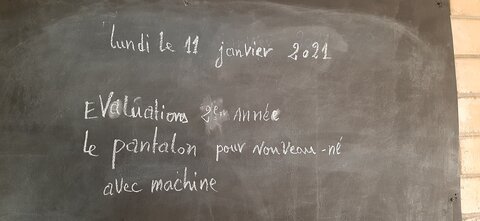 lundi le 11 janvier 2021
Evaluations 2em Année
le pantalon pour nouveau-né
avec machine